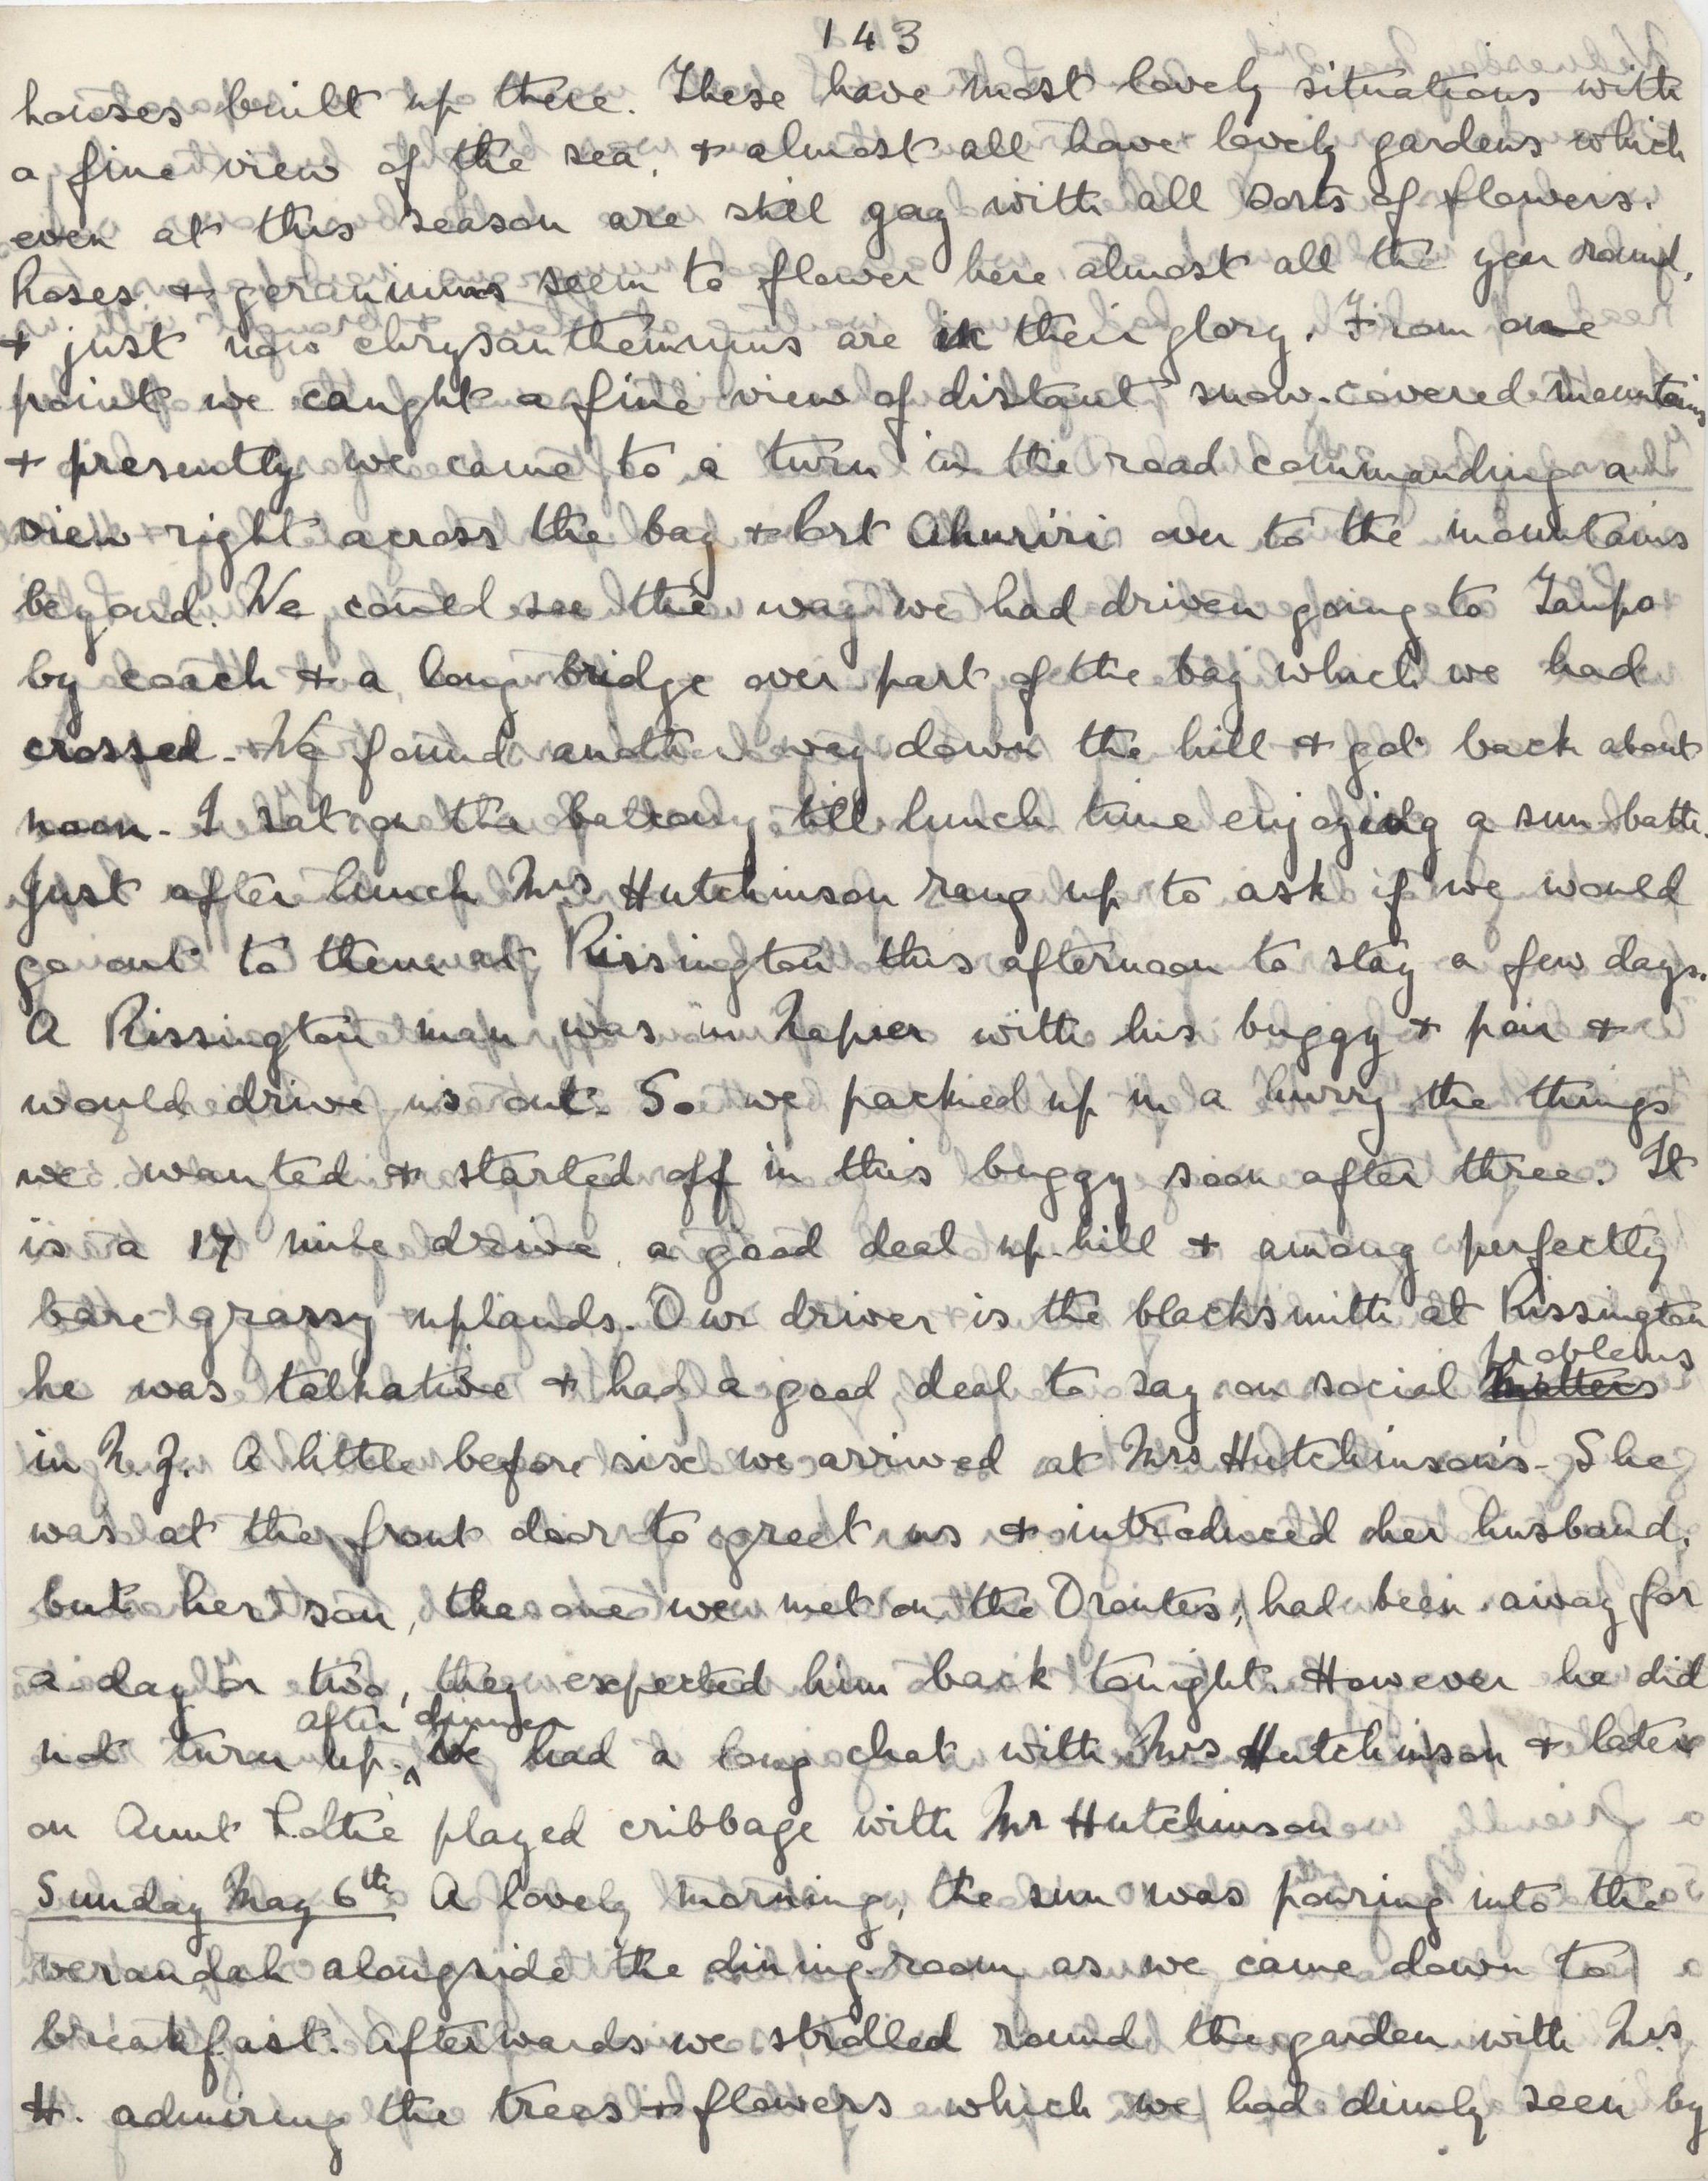 143
houses built up there. These have most lovely situations with
a fine view of the sea, & almost all have lovely gardens which
even at this season are still gay with all sorts of flowers.
Roses & geraniums seem to flower here almost all the year round,
& just now chrysanthemums are in their glory. From one
point we caught a fine view of distant snow-covered mountains
& presently we came to a turn in the road commanding a
view right across the bay & Port Ahuriri over to the mountains
beyond. We could see the way we had driven going to Taupo
by coach & a long bridge over part of the bay which we had
crossed. We found another way down the hill & got back about
noon. I sat on the balcony till lunch time enjoying a sun-bath.
Just after lunch Mrs Hutchinson rang up to ask if we would
go out to them at Rissington this afternoon to stay a few days.
A Rissington man was in Napier with his buggy & pair &
would drive us out. So we packed up in a hurry the things
we wanted & started off in this buggy soon after three. It
is a 17 mile drive, a good deal up-hill & among perfectly
bare grassy uplands. Our driver is the blacksmith at Rissington
problems
he was talkative & had a good deal to say on social matters
in N.Z. A little before six we arrived at Mrs Hutchinson's. She
was at the front door to greet us & introduced her husband,
but her son, the one we met on the Orontes, had been away for
a day or two, they expected him back tonight. However he did
after dinner
not turn up. ^ We had a long chat with Mrs Hutchinson & later
on Aunt Lottie played cribbage with Mr Hutchinson
Sunday May 6th A lovely morning, the sun was pouring into the
verandah alongside the dining-room as we came down to
breakfast. Afterwards we strolled round the garden with Mrs
H. admiring the trees & flowers which we had dimly seen by